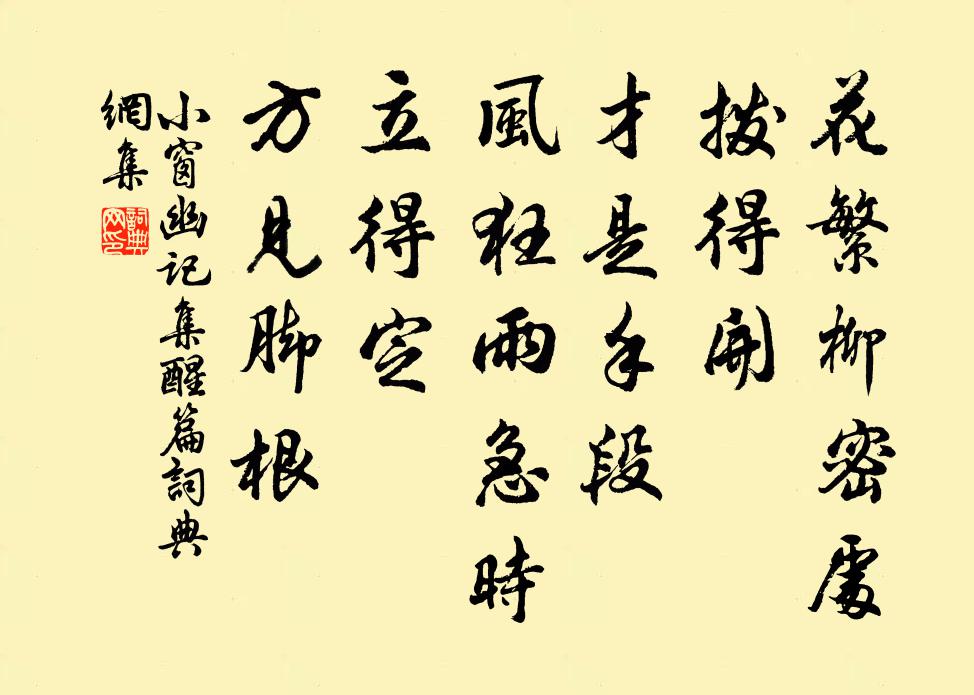 花繁柳密處
撥得開
才是手段
風狂雨急時
立得定
方見脚根
小窗幽記集醒篇詞典
網集
詞典網印